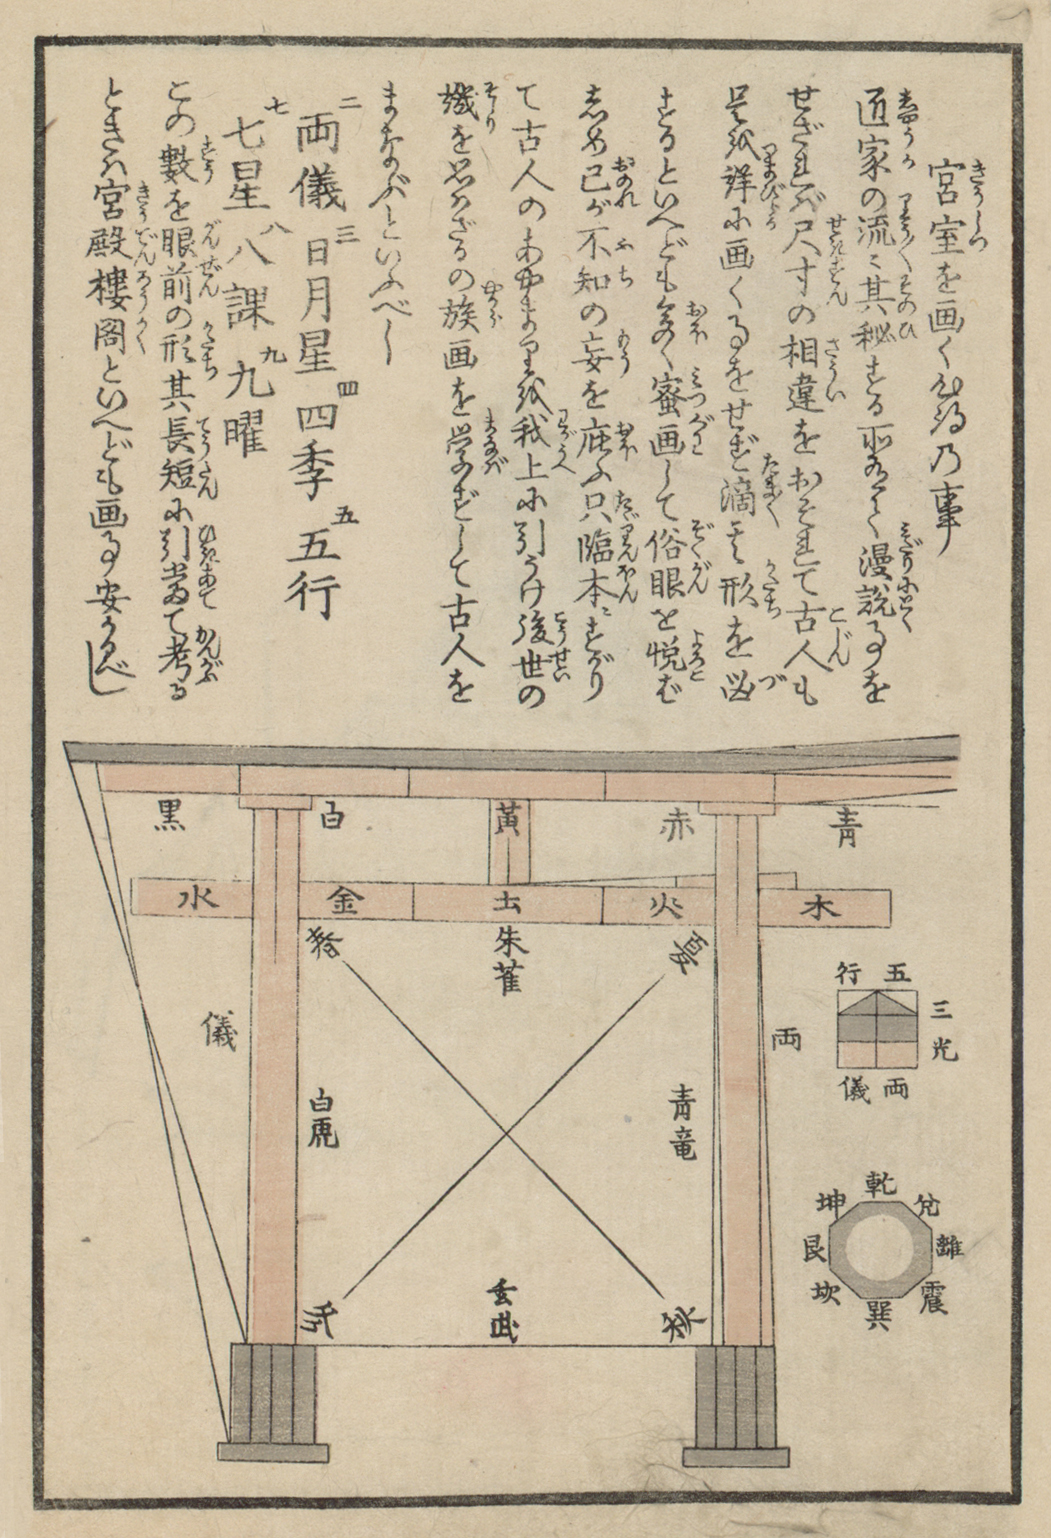 宮室を画く心得乃事
匠家の流に其秘する所ありて漫説事を
せざれバ尺寸の相違をおそれて古人も
是を詳に画く事をせず適々其形を図
するといへども多く蜜画して俗眼を悦ばしめ
己が不知の妄を庇ふ只臨本にすがり
て古人のあやまりを我上に引うけ後世の
譏を思ハざるの族画を学ずして古人を
まなぶといふべし
二 両儀 三 日月星 四 四季 五 五行
七 七星 八 八課 九 九曜
この數を眼前の形其長短に引當て考る
ときハ宮殿樓閣といへども画事安かるべし
青
赤
黃
白
黒
木
火
土
金
水
朱雀
夏
両
儀
青竜
白虎
玄武
五行
三光
両儀
乾
兌
離
震
巽
坎
艮
坤